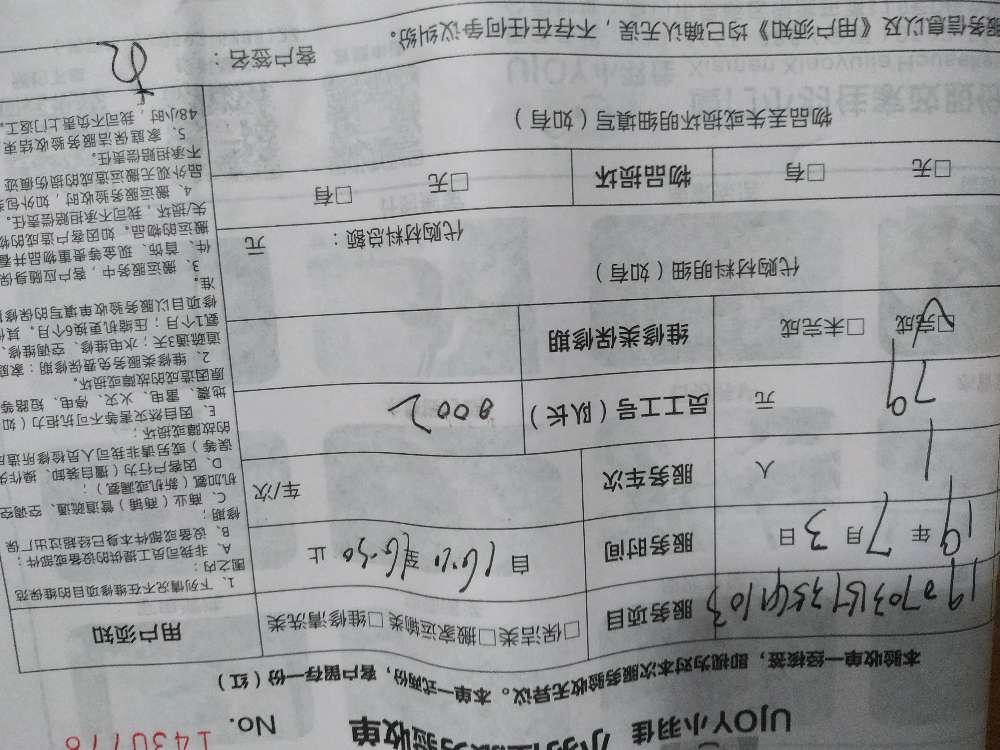 UJOY小羽佳
验收单
No. 1430776
本验收单一经核签，即视为对本次服务验收无异议。本单一式两份，客户留存一份（红）
服务项目 □保洁类□搬家运输类□维修清洗类 用户须知
19年7月3日 服务时间 自16:00至16:30止
1人 服务车次 车/次
79元 员工工号（队长） 8002
□完成 □未完成 维修类保修期
代购材料明细（如有）
代购材料总额： 元
□无 □有 物品损坏 □无 □有
物品丢失或损坏明细填写（如有）
1、下列情况不在维修项目的维保范
围之内：
A、非我司员工提供的设备或部件；
B、设备或部件本身已经超过出厂保
修期；
C、商业（商铺）管道疏通、空调空
机加氨（新机或漏氨）；
D、因客户行为（擅自装卸、操作失
误等）或另请非我司人员检修所造成
的故障或损坏；
E、因自然灾害等不可抗拒力（如
地震、雷电、火灾、停电、短路等
原因造成的故障或损坏。
2、维修类服务免费保修期：家庭
道疏通3天；水电维修、空调维修、
氨1个月；压缩机更换6个月。其他
修项目以服务验收单填写的保修期
准。
3、搬运服务中，客户应随身保
件、首饰、现金等贵重物品并看
搬运的物品。如因客户造成的物
失/损坏，我司不承担赔偿责任。
4、搬运服务验收时，如外包装
品外观无搬运造成的损伤痕迹
不承担赔偿责任。
5、家庭保洁服务验收结束
48小时，我司不负责上门返工。
服务信息以及《用户须知》均已确认无误，不存在任何争议纠纷。
客户签名：